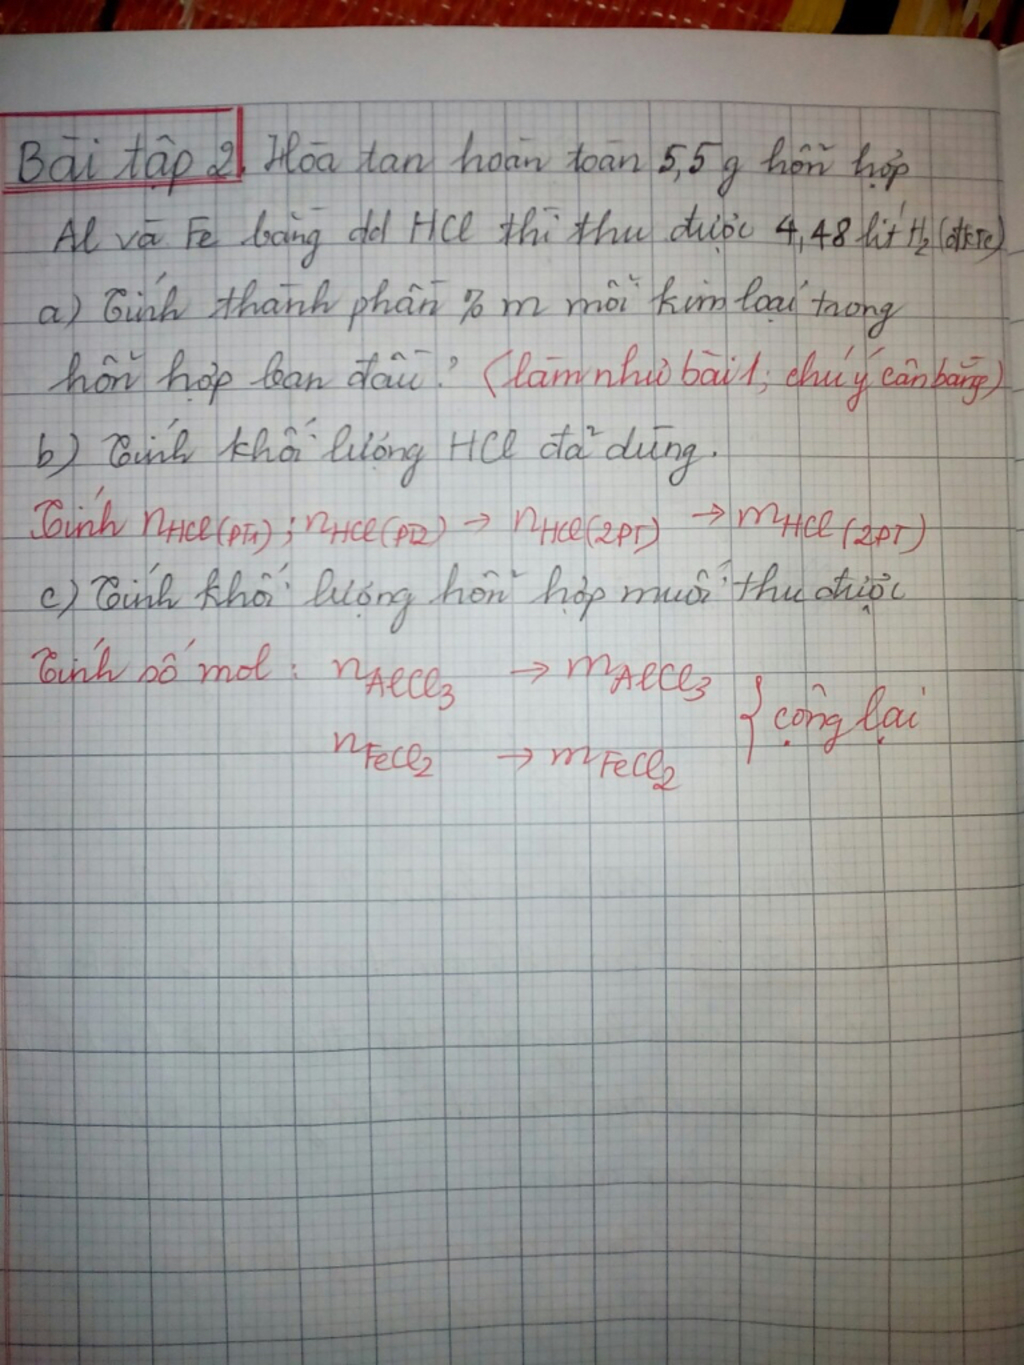 Bài tập 2. Hòa tan hoàn toàn 5,5g hỗn hợp
Al và Fe bằng dd HCl thì thu được 4,48 lít H₂ (đktc)
a) Tính thành phần % m mỗi kim loại trong
hỗn hợp ban đầu? (làm như bài 1; chú ý cân bằng)
b) Tính khối lượng HCl đã dùng.
Tính nHCl(PT1); nHCl(PT2) → nHCl(2PT) → mHCl(2PT)
c) Tính khối lượng hỗn hợp muối thu được
Tính số mol: nAlCl₃ → mAlCl₃
} cộng lại
nFeCl₂ → mFeCl₂